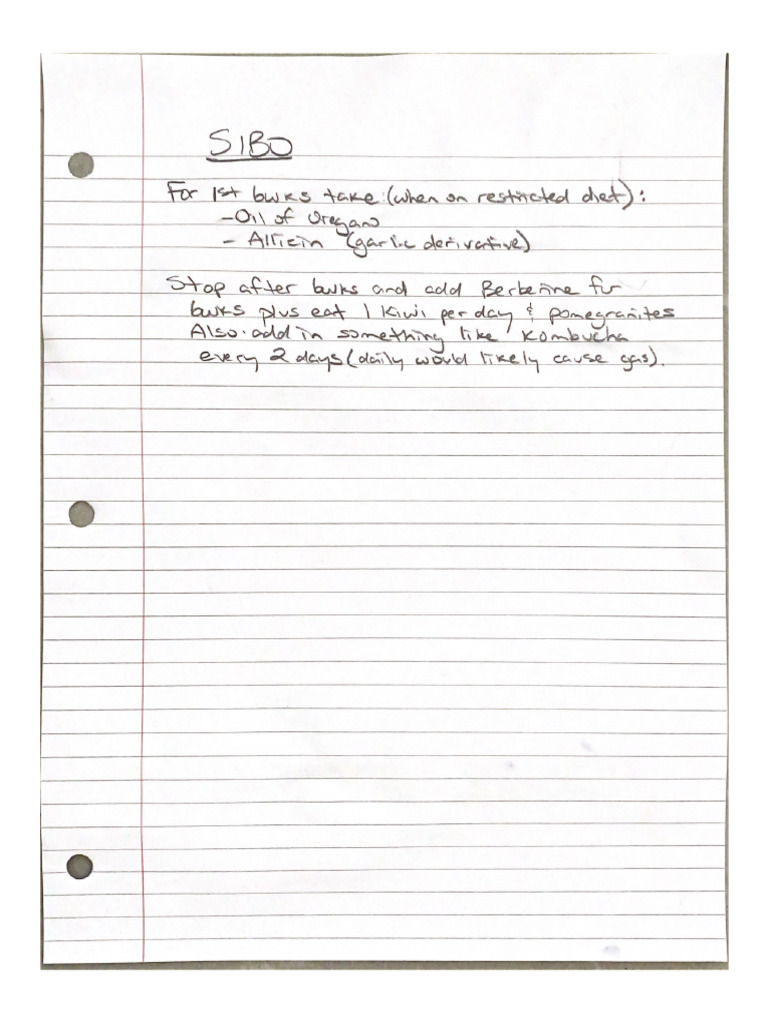 SIBO
For 1st 6wks take (when on restricted diet):
- Oil of Oregano
- Allicin (garlic derivative)
Stop after 6wks and add Berberine for
6wks plus eat 1 Kiwi per day & pomegranites
Also add in something like Kombucha
every 2 days (daily would likely cause gas).